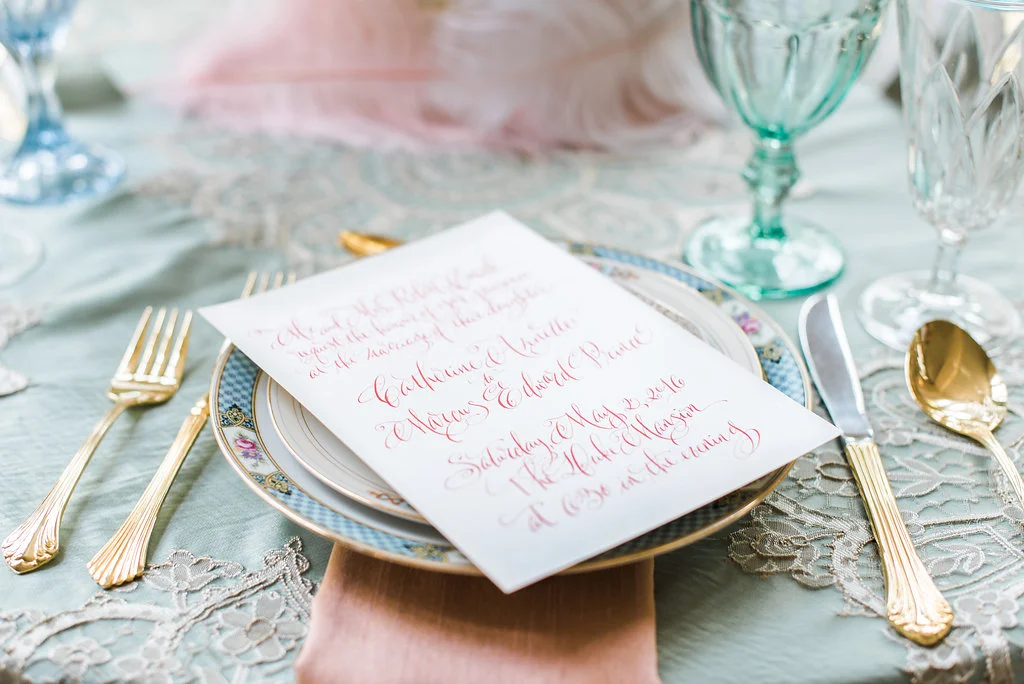 Mr and Mrs Robert
request the honor of your presence
at the marriage of their daughter
Catherine Arielle
to
Marcus Edward Prince
Saturday, May 2, 2016
The Duke Mansion
at 6:30 in the evening